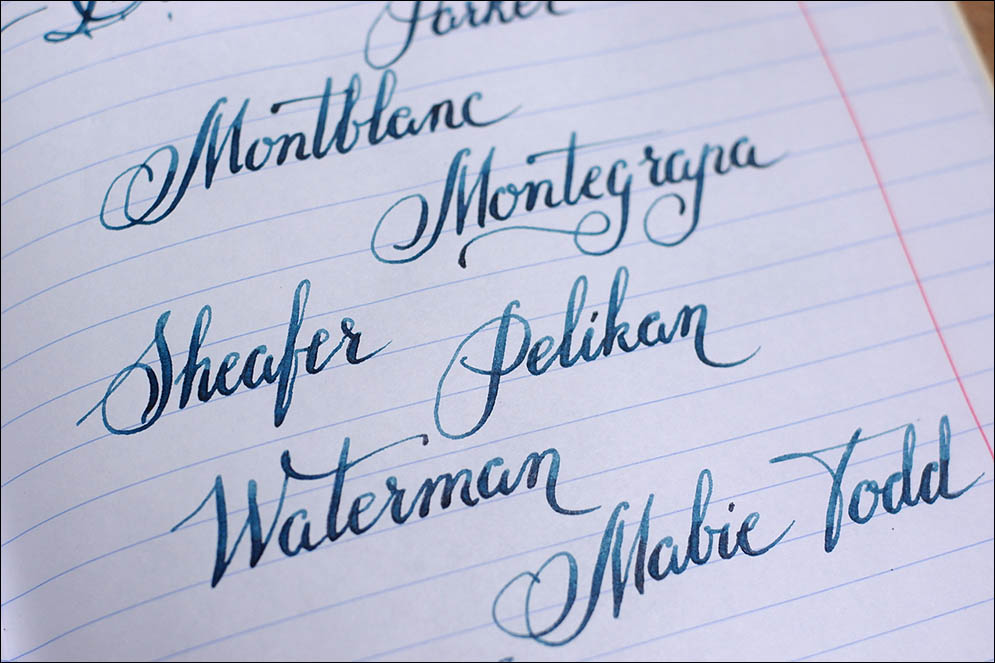 Parker
Montblanc
Montegrapa
Sheafer Pelikan
Waterman
Mabie Todd